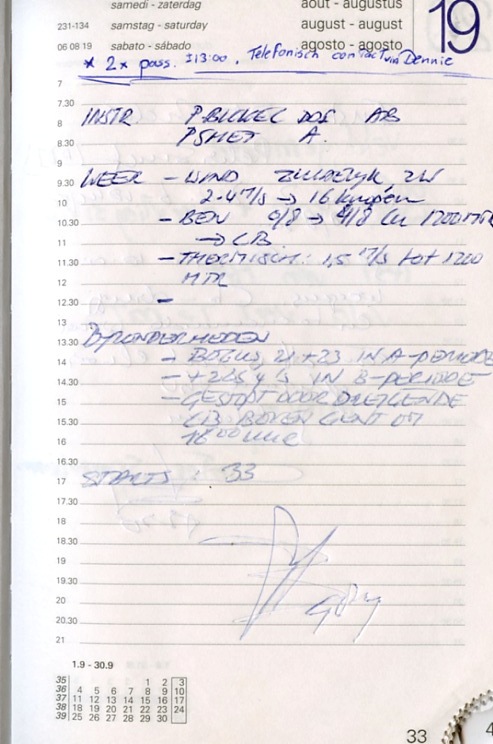 samedi - zaterdag
août - augustus
19
231-134
samstag - saturday
august - august
06 08 19
sabato - sábado
agosto - agosto
* 2x pass. ±13:00, Telefonisch contact via Dennie
7
7.30
8 INSTR. P. DDI AB
8.30 PSMET A.
9
9.30 WEER - WIND ZUIDELIJK ZW
10 2-4 M/S → 16 knopen
10.30 - BEW 0/8 → 4/8 Cu 1200 MTR
11 → CB
11.30 - THERMISCH: 1,5 M/S tot 1200
12 MTR
12.30 -
13
13.30 BIJZONDERHEDEN
14 - 21 + 23 IN A-PERIODE
14.30 - IN B-PERIODE
15 - GESTOPT DOOR DREIGENDE
15.30 CB BOVEN GENT OM
16 16 00 UUR
16.30
17 STARTS: 33
17.30
18
18.30
19
19.30
20
20.30
21
1.9 - 30.9
35 1 2 3
36 4 5 6 7 8 9 10
37 11 12 13 14 15 16 17
38 18 19 20 21 22 23 24
39 25 26 27 28 29 30
33
4